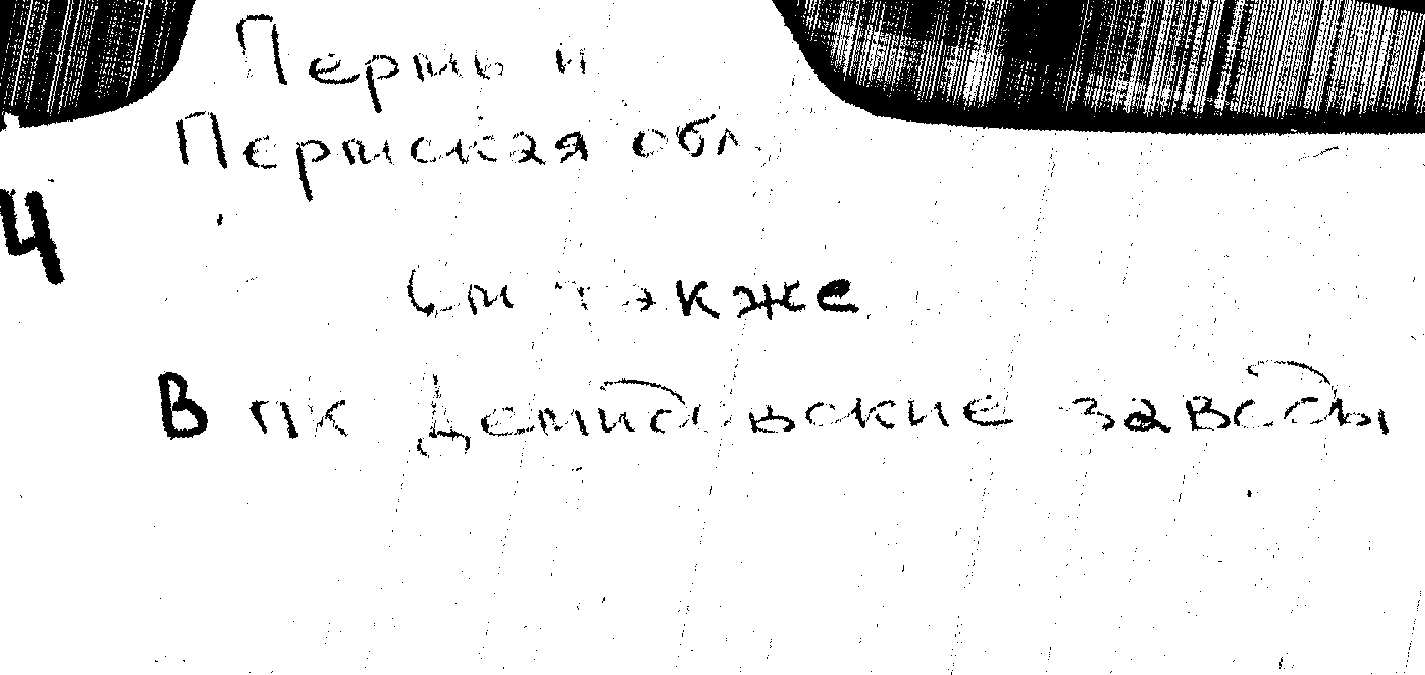 Пермь и
Пермская обл.
Ч
См также
В пк Демидовские заводы